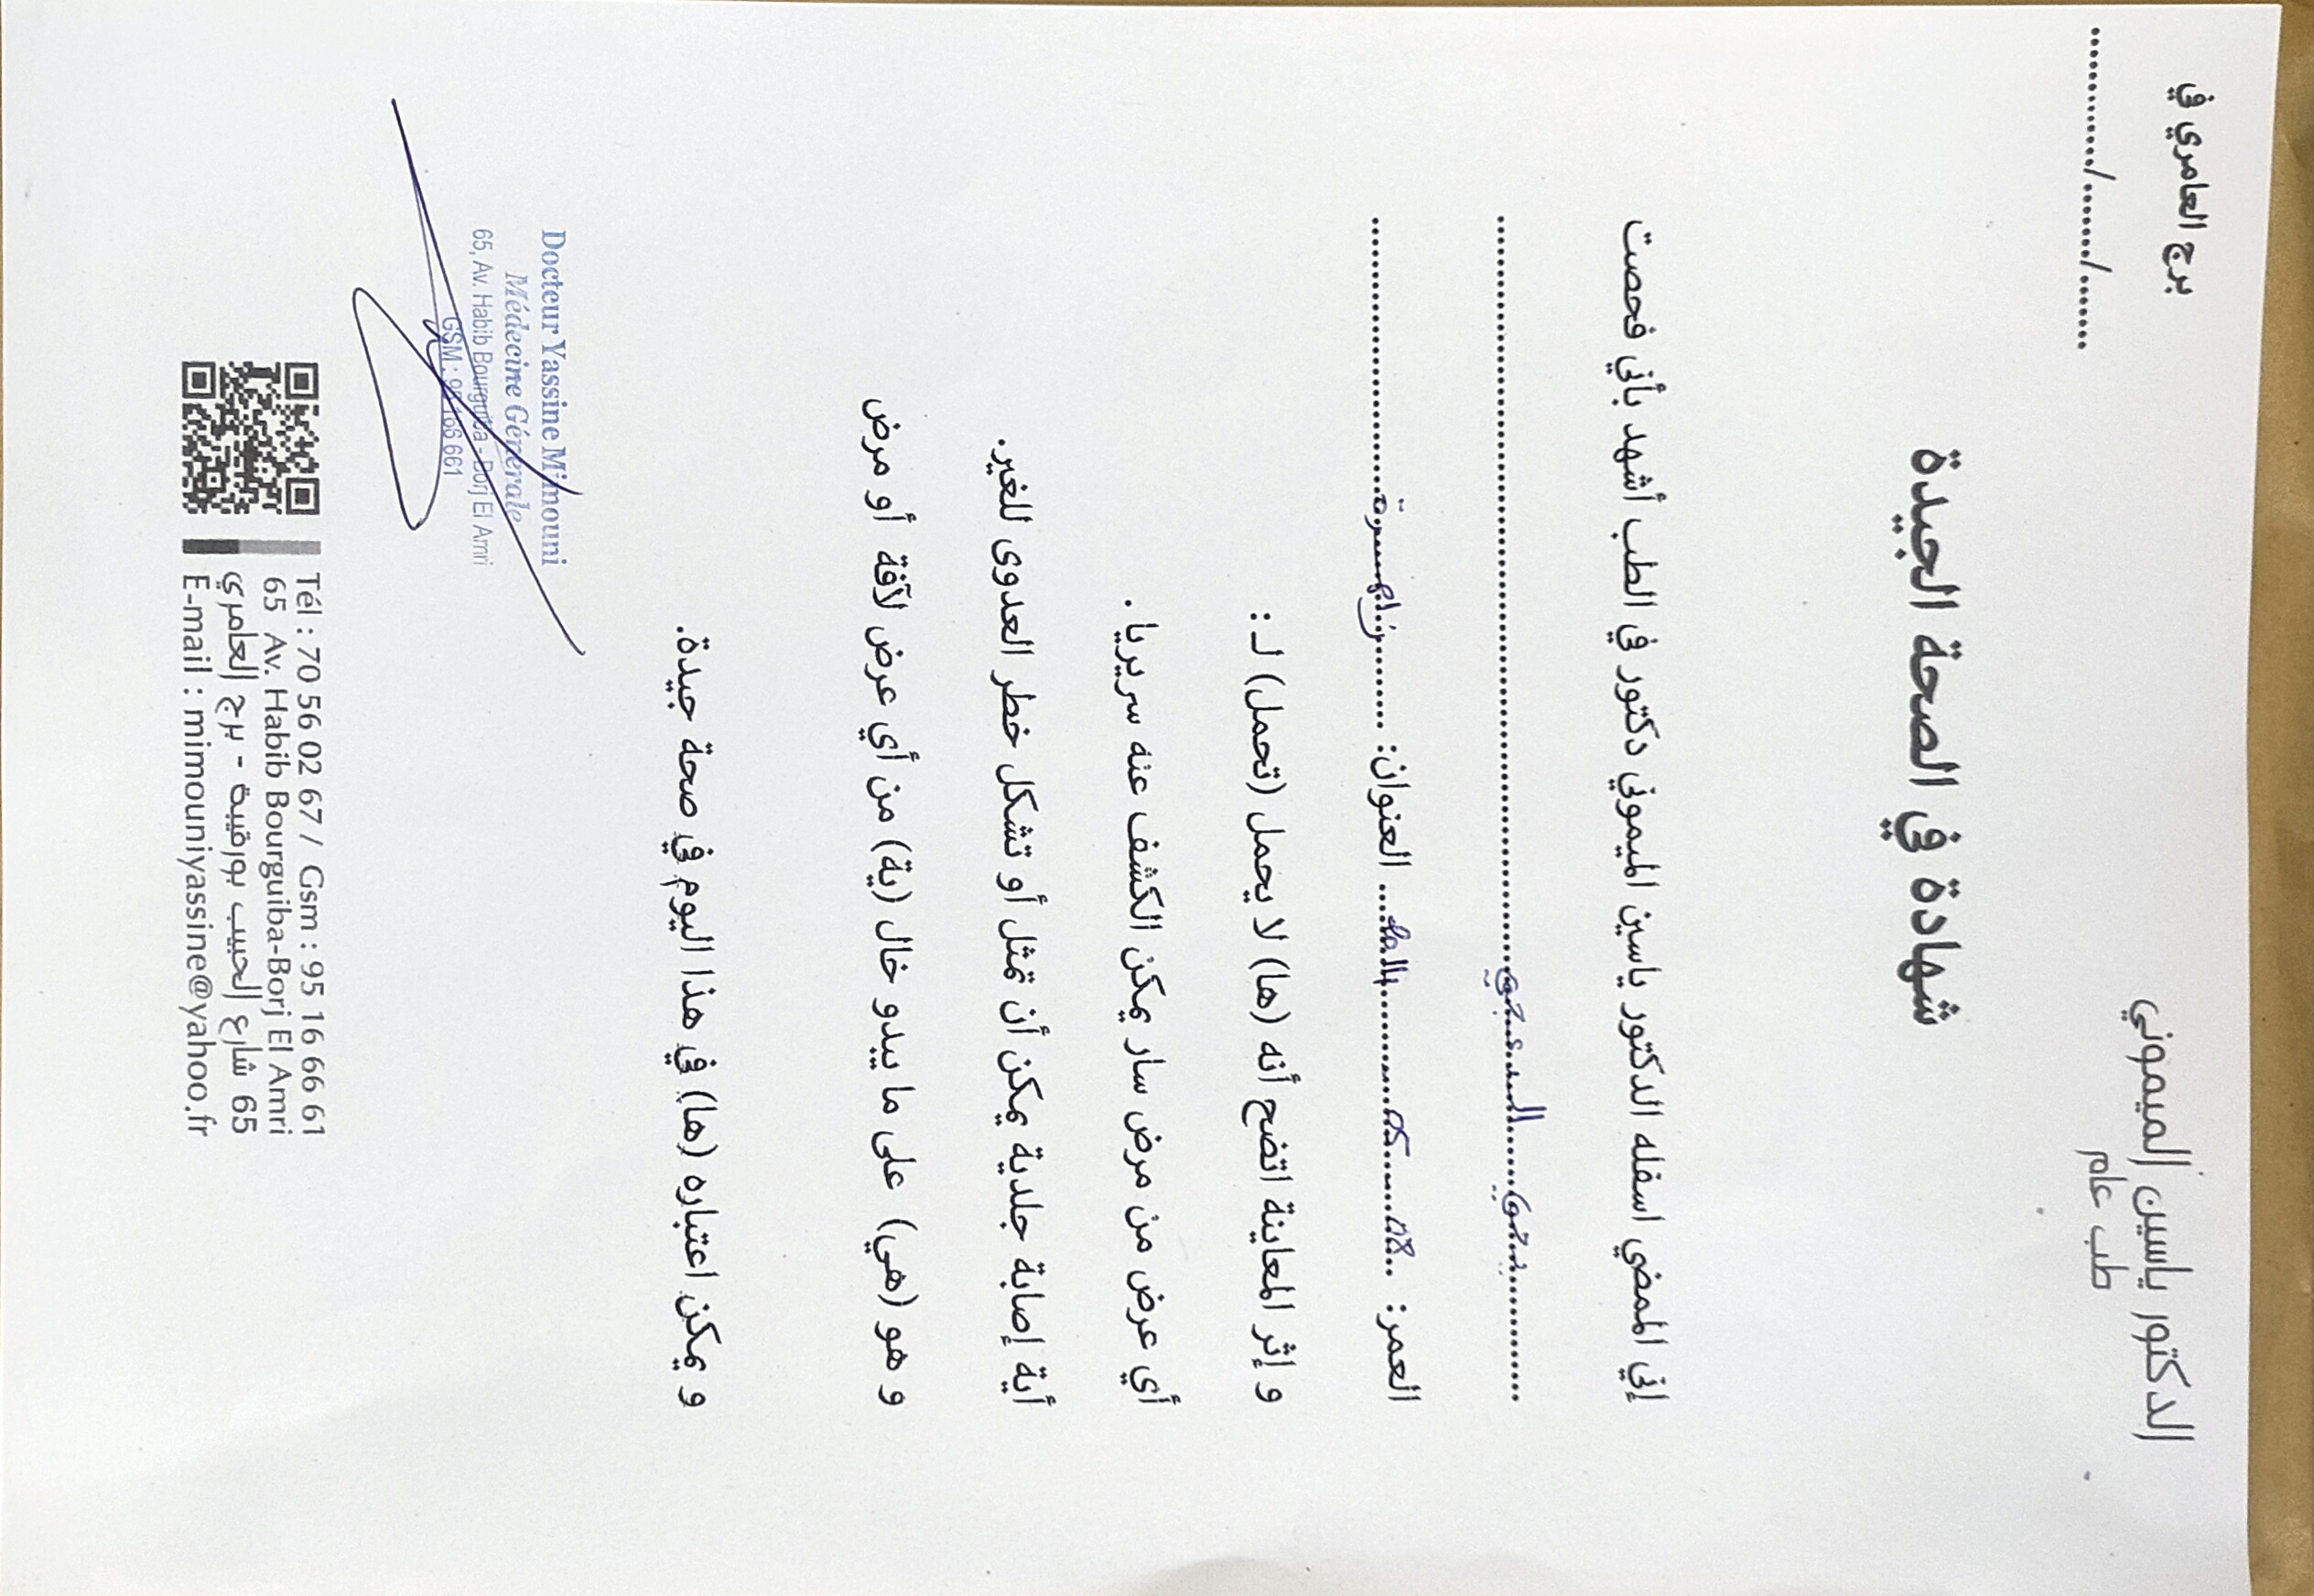 الدكتور ياسين الميموني
طب عام
برج العامري في
........../......./......
شهادة في الصحة الجيدة
إني الممضي اسفله الدكتور ياسين الميموني دكتور في الطب أشهد بأني فحصت
العمر: العنوان:
و إثر المعاينة اتضح أنه (ها) لا يحمل (تحمل) لـ :
أي عرض من مرض سار يمكن الكشف عنه سريريا .
أية إصابة جلدية يمكن أن تمثل أو تشكل خطر العدوى للغير.
و هو (هي) على ما يبدو خال (ية) من أي عرض لآفة أو مرض
و يمكن اعتباره (ها) في هذا اليوم في صحة جيدة.
Docteur Yassine Mimouni
Médecine Générale
65, Av. Habib Bourguiba - Borj El Amri
GSM : 95 166 661
Tél : 70 56 02 67 / Gsm : 95 16 66 61
65 Av. Habib Bourguiba-Borj El Amri
65 شارع الحبيب بورقيبة - برج العامري
E-mail : mimouniyassine@yahoo.fr